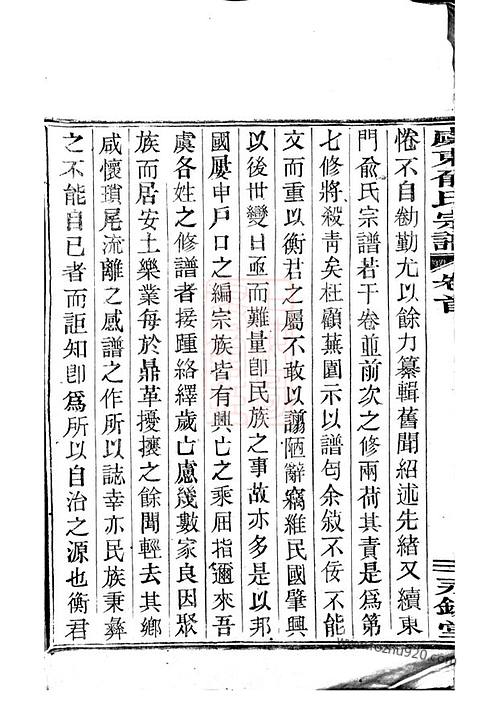 虞東俞氏宗譜 卷首
倦不自勌勤尤以餘力纂輯舊聞紹述先緒又續東
門俞氏宗譜若干卷並前次之修兩荷其責是爲第
七修將殺青矣枉顧蕪園示以譜匄余敘不佞不能
文而重以衡君之屬不敢以謭陋辭竊維民國肇興
以後世變日亟而難量卽民族之事故亦多是以邦
國屢申戶口之編宗族皆有興亡之乘屈指邇來吾
虞各姓之修譜者接踵絡繹歲亡慮幾數家良因聚
族而居安土樂業每於鼎革擾攘之餘聞輕去其鄉
咸懷瑣尾流離之感譜之作所以誌幸亦民族秉彝
之不能自已者而詎知卽爲所以自治之源也衡君